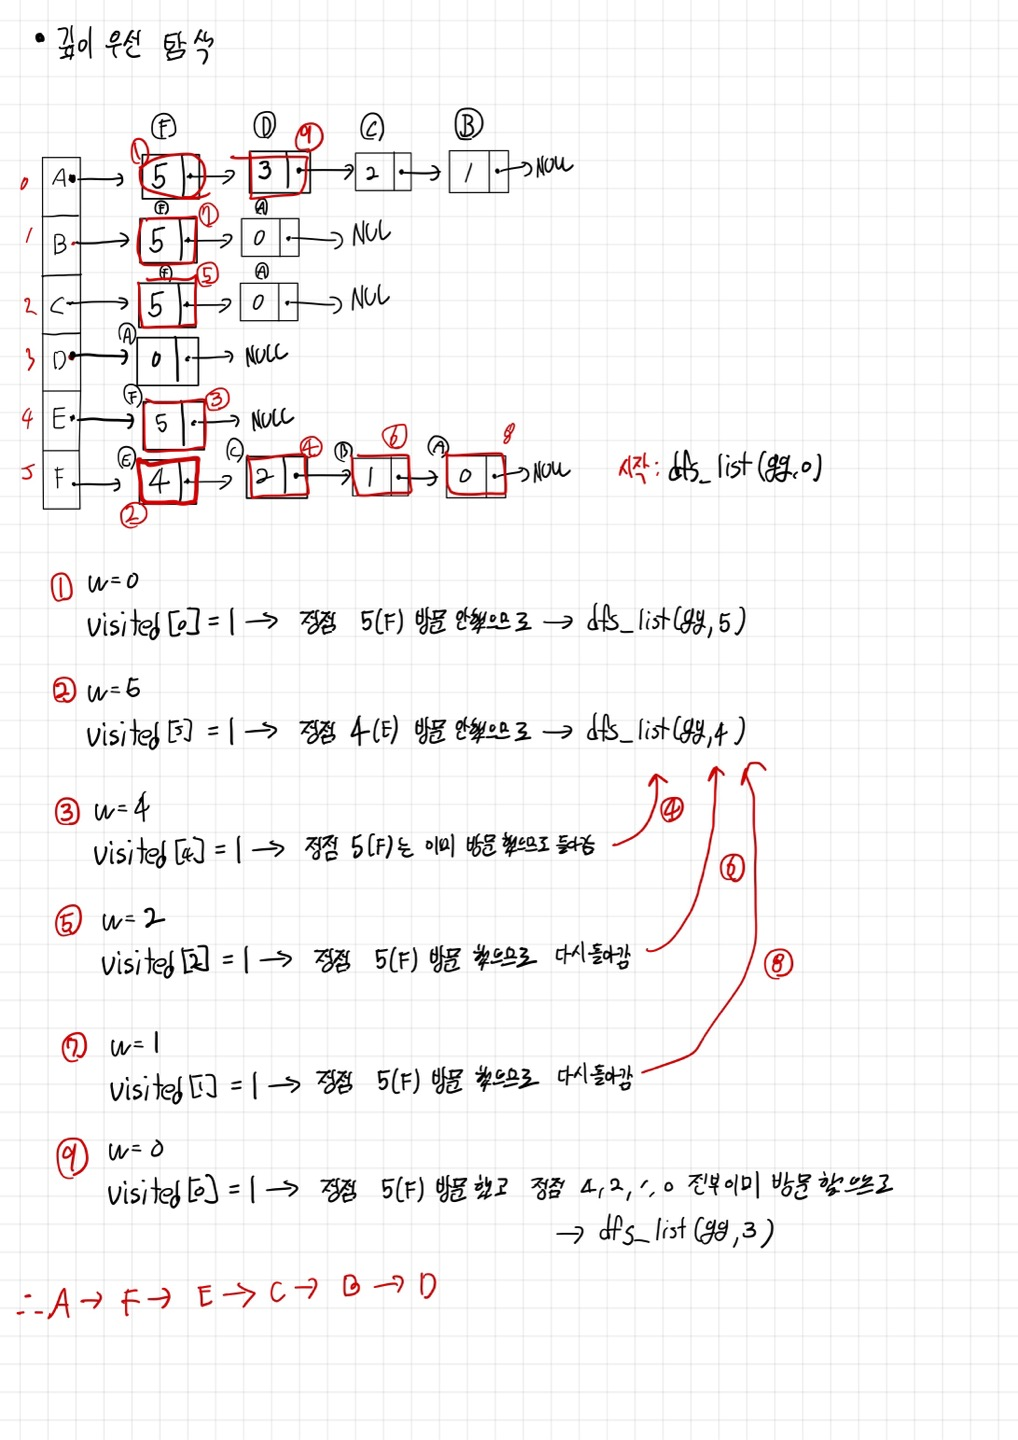 • 깊이 우선 탐색
Ⓕ Ⓓ ⑨ Ⓒ Ⓑ
①
0 A 5 3 2 1 NULL
Ⓕ ⑦ Ⓐ
1 B 5 0 NUL
Ⓕ ⑤ Ⓐ
2 C 5 0 NUL
Ⓐ
3 D 0 NULL
Ⓕ ③
4 E 5 NULL
Ⓔ Ⓒ ④ Ⓑ ⑥ Ⓐ 8
5 F 4 2 1 0 NULL
②
시작: dfs_list(gg,0)
① u=0
visited[0]=1 → 정점 5(F) 방문 안했으므로 → dfs_list(gg,5)
② u=5
visited[5]=1 → 정점 4(E) 방문 안했으므로 → dfs_list(gg,4)
③ u=4
visited[4]=1 → 정점 5(F)는 이미 방문 했으므로 돌아감 ④
⑤ u=2
visited[2]=1 → 정점 5(F) 방문 했으므로 다시 돌아감 ⑥
⑦ u=1
visited[1]=1 → 정점 5(F) 방문 했으므로 다시 돌아감 ⑧
⑨ u=0
visited[0]=1 → 정점 5(F) 방문 했고 정점 4,2,1,0 전부 이미 방문 했으므로
→ dfs_list(gg,3)
∴ A → F → E → C → B → D